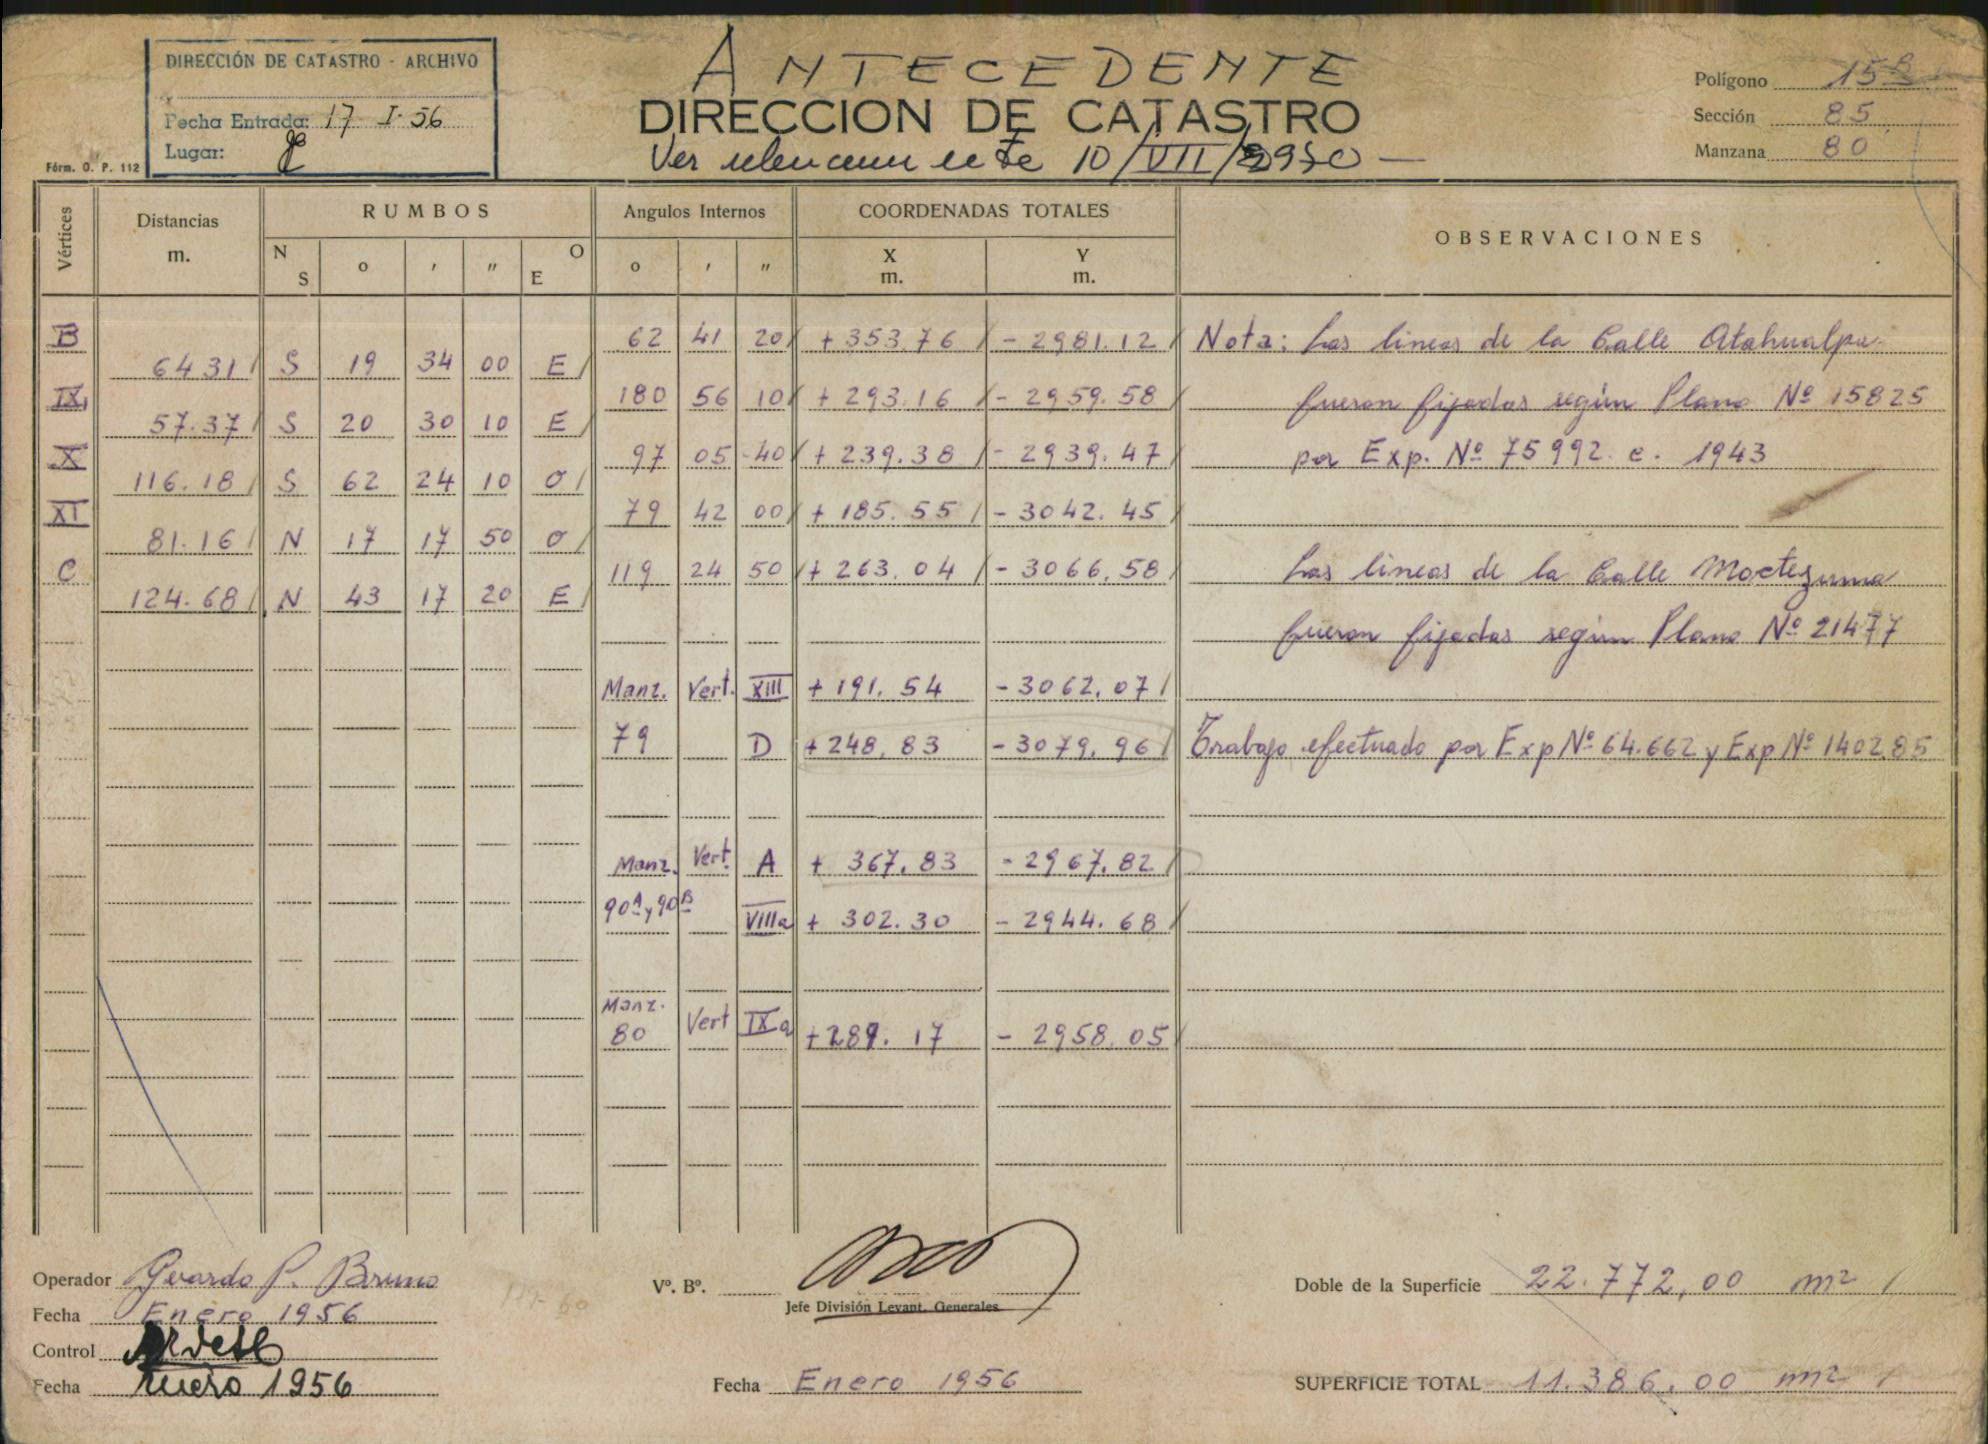 DIRECCIÓN DE CATASTRO - ARCHIVO
Fecha Entrada: 17 I-56
Lugar:
Fórm. O. P. 112
ANTECEDENTE
DIRECCION DE CATASTRO
Ver 10/VII/
Polígono 15 B
Sección 85
Manzana 80
Vértices Distancias m. RUMBOS Angulos Internos COORDENADAS TOTALES OBSERVACIONES
N S o ' " O E o ' " X m. Y m.
B 62 41 20 + 353.76 - 2981.12 Nota: Las lineas de la Calle Atahualpa
64.31 S 19 34 00 E
IX 180 56 10 + 293.16 - 2959.58 fueron fijadas según Plano Nº 15825
57.37 S 20 30 10 E
X 97 05 40 + 239.38 - 2939.47 por Exp. Nº 75992. c. 1943
116.18 S 62 24 10 O
XI 79 42 00 + 185.55 - 3042.45
81.16 N 17 17 50 O
C 119 24 50 + 263.04 - 3066.58 Las lineas de la Calle Moctezuma
124.68 N 43 17 20 E
fueron fijadas según Plano Nº 21477
Manz. Vert. XIII + 191.54 - 3062.07
79 D + 248.83 - 3079.96 Trabajo efectuado por Exp Nº 64.662 y Exp Nº 1402.85
Manz. Vert. A + 367.83 - 2967.82
90A y 90B VIIIa + 302.30 - 2944.68
Manz.
80 Vert IXa +289.17 - 2958.05
Operador Gerardo P. Bruno
Fecha Enero 1956
Control
Fecha Enero 1956
Vº. Bº.
Jefe División Levant. Generales
Fecha Enero 1956
Doble de la Superficie 22.772,00 m2
SUPERFICIE TOTAL 11.386,00 m2